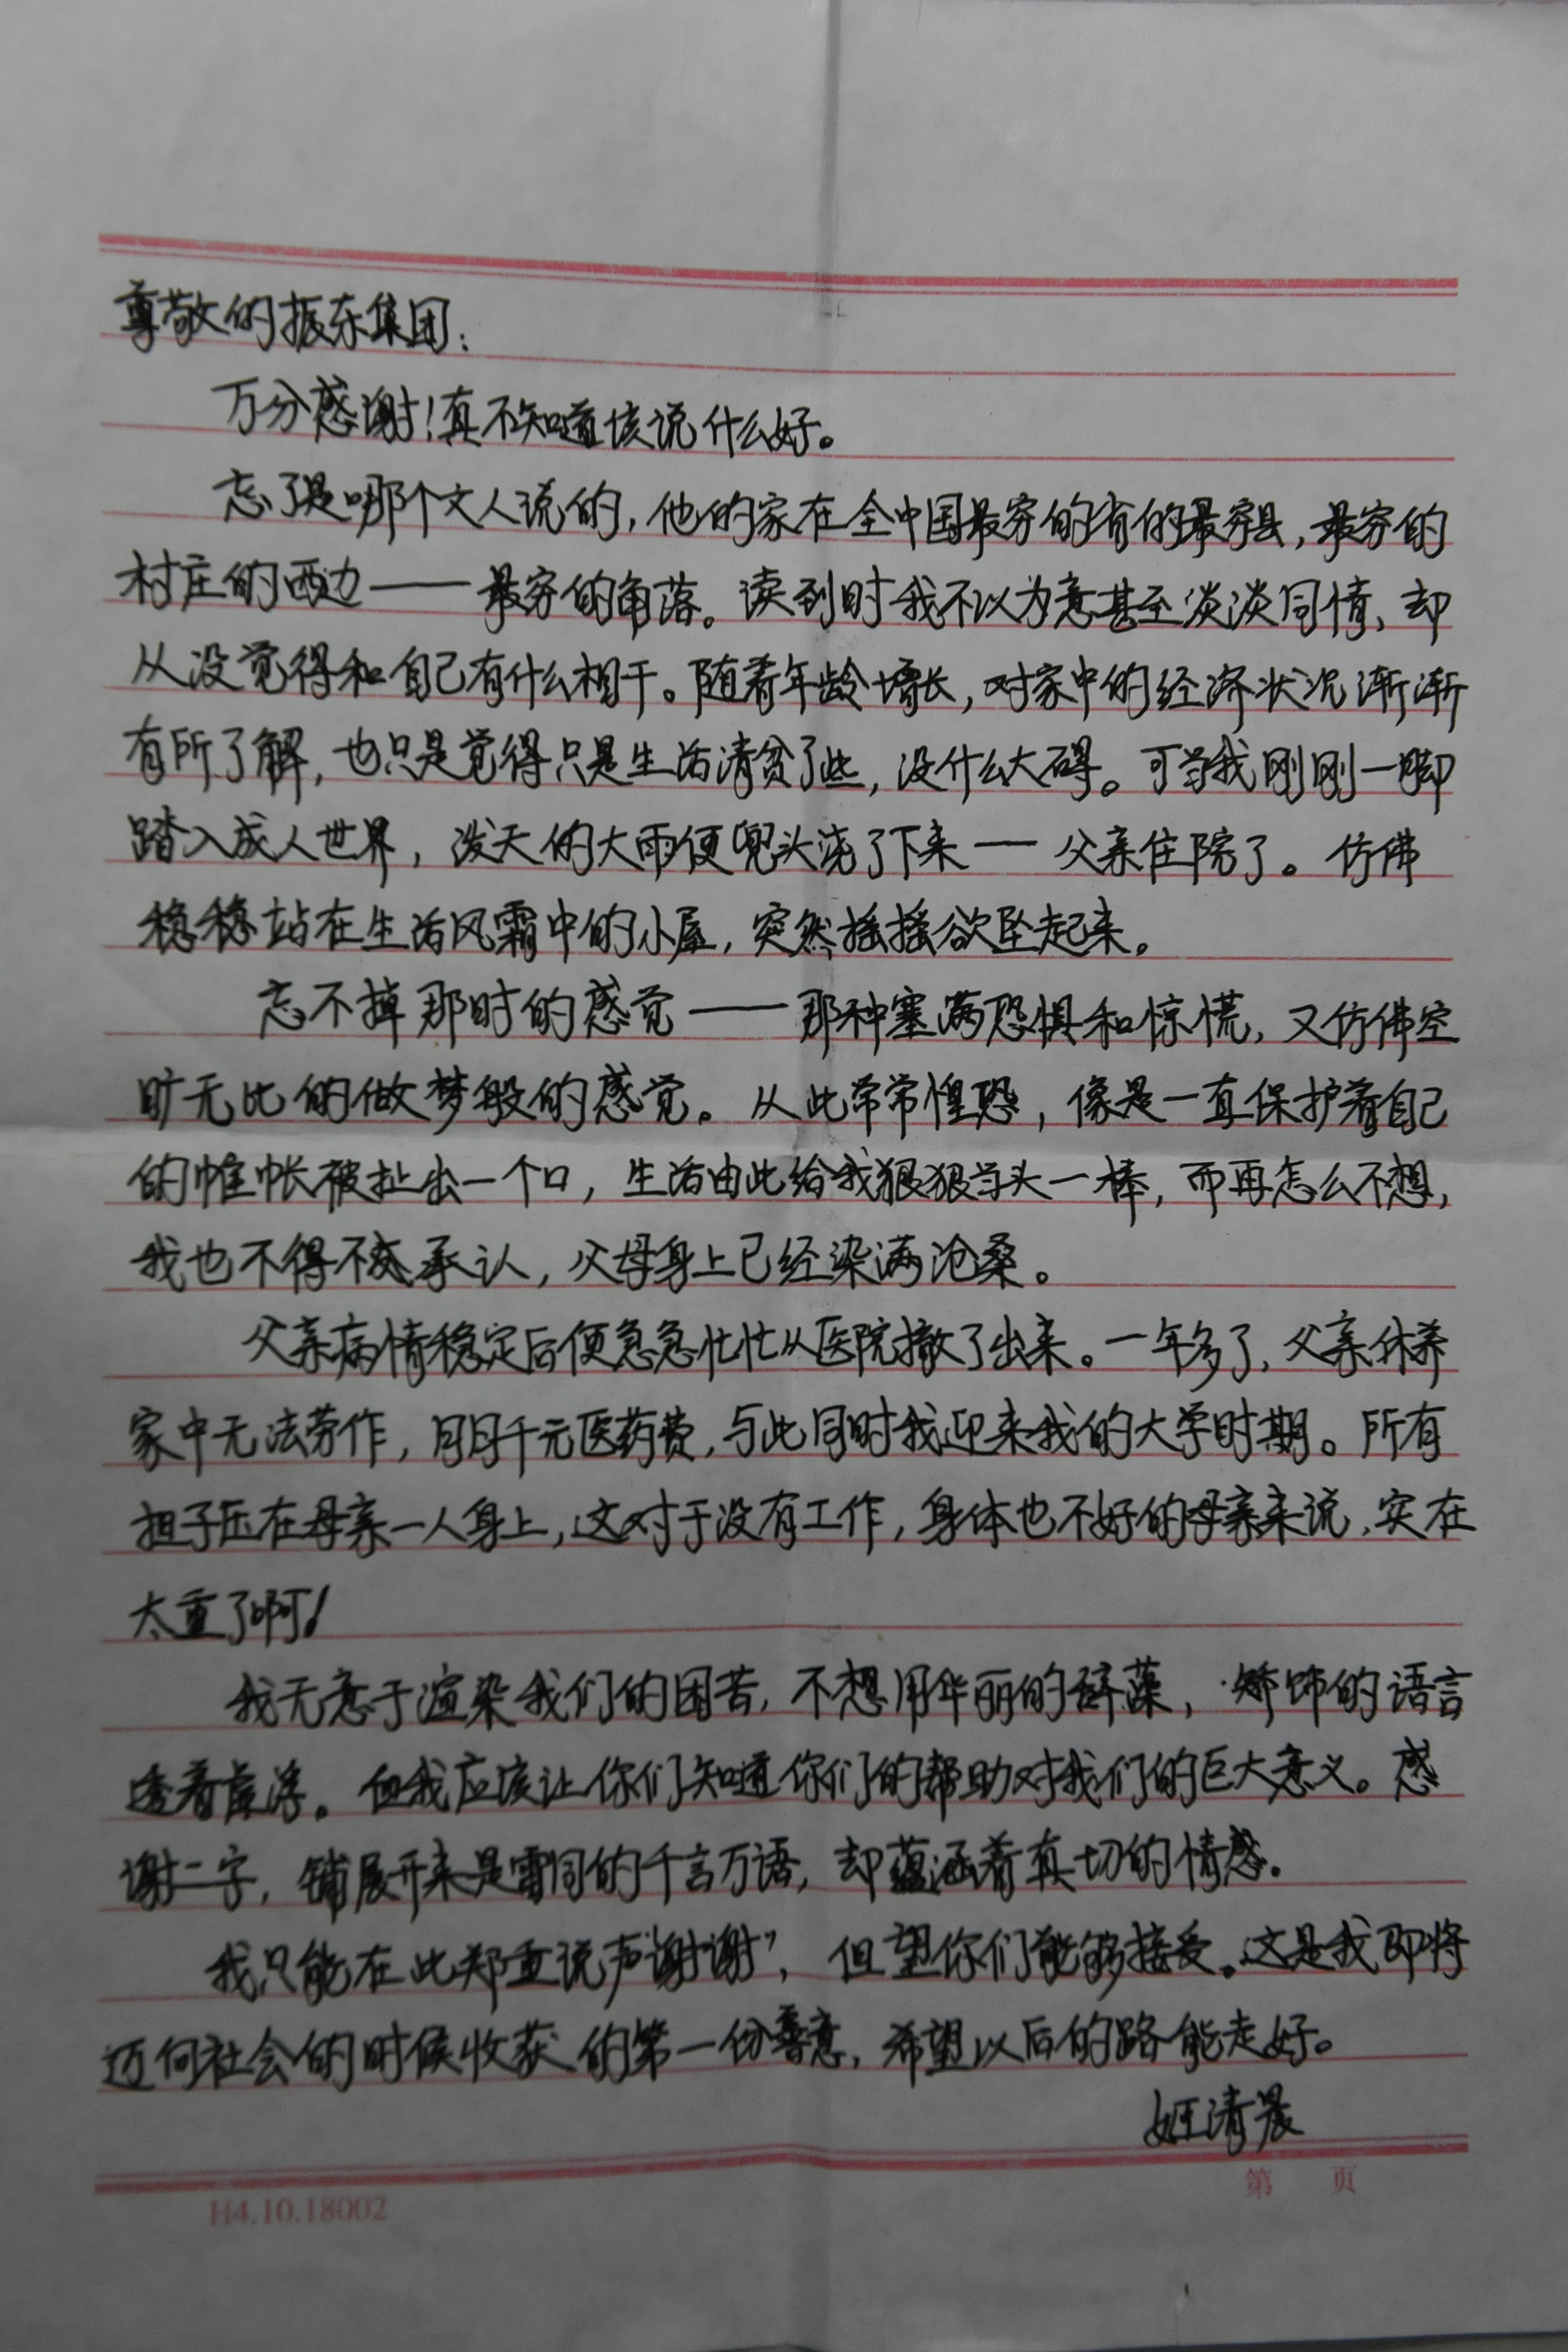 尊敬的振东集团：
万分感谢！真不知道该说什么好。
忘了是哪个文人说的，他的家在全中国最穷的省的最穷县，最穷的
村庄的西边——最穷的角落。读到时我不以为意甚至淡淡同情、却
从没觉得和自己有什么相干。随着年龄增长，对家中的经济状况渐渐
有所了解，也只是觉得只是生活清贫了些，没什么大碍。可当我刚刚一脚
踏入成人世界，泼天的大雨便兜头浇了下来——父亲住院了。仿佛
稳稳站在生活风霜中的小屋，突然摇摇欲坠起来。
忘不掉那时的感觉——那种塞满恐惧和惊慌，又仿佛空
旷无比的做梦般的感觉。从此常常惶恐，像是一直保护着自己
的帷帐被扯出一个口，生活由此给我狠狠当头一棒，而再怎么不想，
我也不得不承认，父母身上已经染满沧桑。
父亲病情稳定后便急急忙忙从医院撤了出来。一年多了，父亲休养
家中无法劳作，月月千元医药费，与此同时我迎来我的大学时期。所有
担子压在母亲一人身上，这对于没有工作，身体也不好的母亲来说，实在
太重了啊！
我无意于渲染我们的困苦，不想用华丽的辞藻，矫饰的语言
透着虚浮。但我应该让你们知道你们的帮助对我们的巨大意义。感
谢二字，铺展开来是雷同的千言万语，却蕴涵着真切的情感。
我只能在此郑重说声“谢谢”，但望你们能够接受。这是我即将
迈向社会的时候收获的第一份善意，希望以后的路能走好。
姬清晨
第 页
H4.10.18002